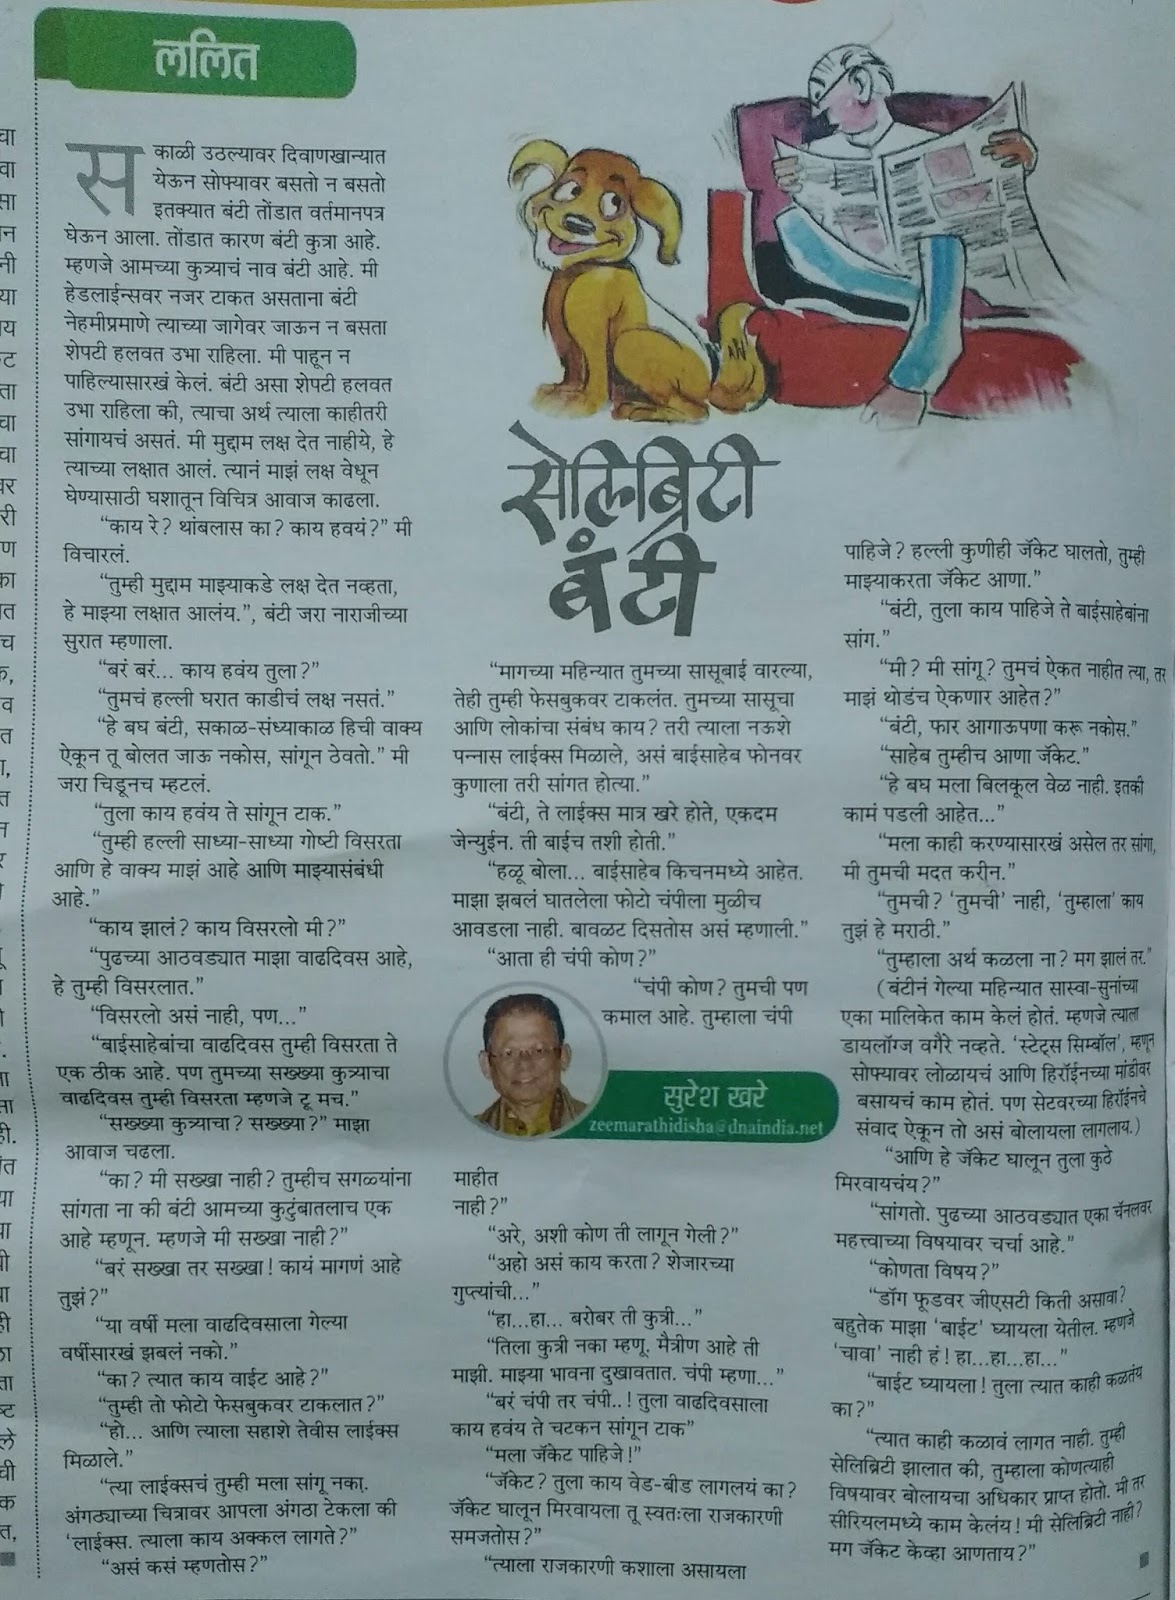 ललित
स
काळी उठल्यावर दिवाणखान्यात
येऊन सोफ्यावर बसतो न बसतो
इतक्यात बंटी तोंडात वर्तमानपत्र
घेऊन आला. तोंडात कारण बंटी कुत्रा आहे.
म्हणजे आमच्या कुत्र्याचं नाव बंटी आहे. मी
हेडलाईन्सवर नजर टाकत असताना बंटी
नेहमीप्रमाणे त्याच्या जागेवर जाऊन न बसता
शेपटी हलवत उभा राहिला. मी पाहून न
पाहिल्यासारखं केलं. बंटी असा शेपटी हलवत
उभा राहिला की, त्याचा अर्थ त्याला काहीतरी
सांगायचं असतं. मी मुद्दाम लक्ष देत नाहीये, हे
त्याच्या लक्षात आलं. त्यानं माझं लक्ष वेधून
घेण्यासाठी घशातून विचित्र आवाज काढला.
“काय रे? थांबलास का? काय हवयं?” मी
विचारलं.
“तुम्ही मुद्दाम माझ्याकडे लक्ष देत नव्हता,
हे माझ्या लक्षात आलंय.”, बंटी जरा नाराजीच्या
सुरात म्हणाला.
“बरं बरं... काय हवंय तुला?”
“तुमचं हल्ली घरात काडीचं लक्ष नसतं.”
“हे बघ बंटी, सकाळ-संध्याकाळ हिची वाक्य
ऐकून तू बोलत जाऊ नकोस, सांगून ठेवतो.” मी
जरा चिडूनच म्हटलं.
“तुला काय हवंय ते सांगून टाक.”
“तुम्ही हल्ली साध्या-साध्या गोष्टी विसरता
आणि हे वाक्य माझं आहे आणि माझ्यासंबंधी
आहे.”
“काय झालं? काय विसरलो मी?”
“पुढच्या आठवड्यात माझा वाढदिवस आहे,
हे तुम्ही विसरलात.”
“विसरलो असं नाही, पण...”
“बाईसाहेबांचा वाढदिवस तुम्ही विसरता ते
एक ठीक आहे. पण तुमच्या सख्ख्या कुत्र्याचा
वाढदिवस तुम्ही विसरता म्हणजे टू मच.”
“सख्ख्या कुत्र्याचा? सख्ख्या?” माझा
आवाज चढला.
“का? मी सख्खा नाही? तुम्हीच सगळ्यांना
सांगता ना की बंटी आमच्या कुटुंबातलाच एक
आहे म्हणून. म्हणजे मी सख्खा नाही?”
“बरं सख्खा तर सख्खा! कायं मागणं आहे
तुझं?”
“या वर्षी मला वाढदिवसाला गेल्या
वर्षीसारखं झबलं नको.”
“का? त्यात काय वाईट आहे?”
“तुम्ही तो फोटो फेसबुकवर टाकलात?”
“हो... आणि त्याला सहाशे तेवीस लाईक्स
मिळाले.”
“त्या लाईक्सचं तुम्ही मला सांगू नका.
अंगठ्याच्या चित्रावर आपला अंगठा टेकला की
‘लाईक्स. त्याला काय अक्कल लागते?”
“असं कसं म्हणतोस?”
सेलिब्रिटी
बंटी
“मागच्या महिन्यात तुमच्या सासूबाई वारल्या,
तेही तुम्ही फेसबुकवर टाकलंत. तुमच्या सासूचा
आणि लोकांचा संबंध काय? तरी त्याला नऊशे
पन्नास लाईक्स मिळाले, असं बाईसाहेब फोनवर
कुणाला तरी सांगत होत्या.”
“बंटी, ते लाईक्स मात्र खरे होते, एकदम
जेन्युईन. ती बाईच तशी होती.”
“हळू बोला... बाईसाहेब किचनमध्ये आहेत.
माझा झबलं घातलेला फोटो चंपीला मुळीच
आवडला नाही. बावळट दिसतोस असं म्हणाली.”
“आता ही चंपी कोण?”
“चंपी कोण? तुमची पण
कमाल आहे. तुम्हाला चंपी
सुरेश खरे
zeemarathidisha@dnaindia.net
माहीत
नाही?”
“अरे, अशी कोण ती लागून गेली?”
“अहो असं काय करता? शेजारच्या
गुप्त्यांची...”
“हा...हा... बरोबर ती कुत्री...”
“तिला कुत्री नका म्हणू. मैत्रीण आहे ती
माझी. माझ्या भावना दुखावतात. चंपी म्हणा...”
“बरं चंपी तर चंपी..! तुला वाढदिवसाला
काय हवंय ते चटकन सांगून टाक”
“मला जॅकेट पाहिजे!”
“जॅकेट? तुला काय वेड-बीड लागलयं का?
जॅकेट घालून मिरवायला तू स्वतःला राजकारणी
समजतोस?”
“त्याला राजकारणी कशाला असायला
पाहिजे? हल्ली कुणीही जॅकेट घालतो, तुम्ही
माझ्याकरता जॅकेट आणा.”
“बंटी, तुला काय पाहिजे ते बाईसाहेबांना
सांग.”
“मी? मी सांगू? तुमचं ऐकत नाहीत त्या, तर
माझं थोडंच ऐकणार आहेत?”
“बंटी, फार आगाऊपणा करू नकोस.”
“साहेब तुम्हीच आणा जॅकेट.”
“हे बघ मला बिलकूल वेळ नाही. इतकी
कामं पडली आहेत...”
“मला काही करण्यासारखं असेल तर सांगा,
मी तुमची मदत करीन.”
“तुमची? ‘तुमची’ नाही, ‘तुम्हाला’ काय
तुझं हे मराठी.”
“तुम्हाला अर्थ कळला ना? मग झालं तर.”
(बंटीनं गेल्या महिन्यात सास्वा-सुनांच्या
एका मालिकेत काम केलं होतं. म्हणजे त्याला
डायलॉग्ज वगैरे नव्हते. ‘स्टेट्स सिम्बॉल’, म्हणून
सोफ्यावर लोळायचं आणि हिरॉईनच्या मांडीवर
बसायचं काम होतं. पण सेटवरच्या हिरॉईनचे
संवाद ऐकून तो असं बोलायला लागलाय.)
“आणि हे जॅकेट घालून तुला कुठे
मिरवायचंय?”
“सांगतो. पुढच्या आठवड्यात एका चॅनलवर
महत्त्वाच्या विषयावर चर्चा आहे.”
“कोणता विषय?”
“डॉग फूडवर जीएसटी किती असावा?
बहुतेक माझा ‘बाईट’ घ्यायला येतील. म्हणजे
‘चावा’ नाही हं! हा...हा...हा...”
“बाईट घ्यायला! तुला त्यात काही कळतंय
का?”
“त्यात काही कळावं लागत नाही. तुम्ही
सेलिब्रिटी झालात की, तुम्हाला कोणत्याही
विषयावर बोलायचा अधिकार प्राप्त होतो. मी तर
सीरियलमध्ये काम केलंय! मी सेलिब्रिटी नाही?
मग जॅकेट केव्हा आणताय?”